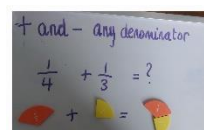 + and - any denominator
1/4 + 1/3 = ?
+ =